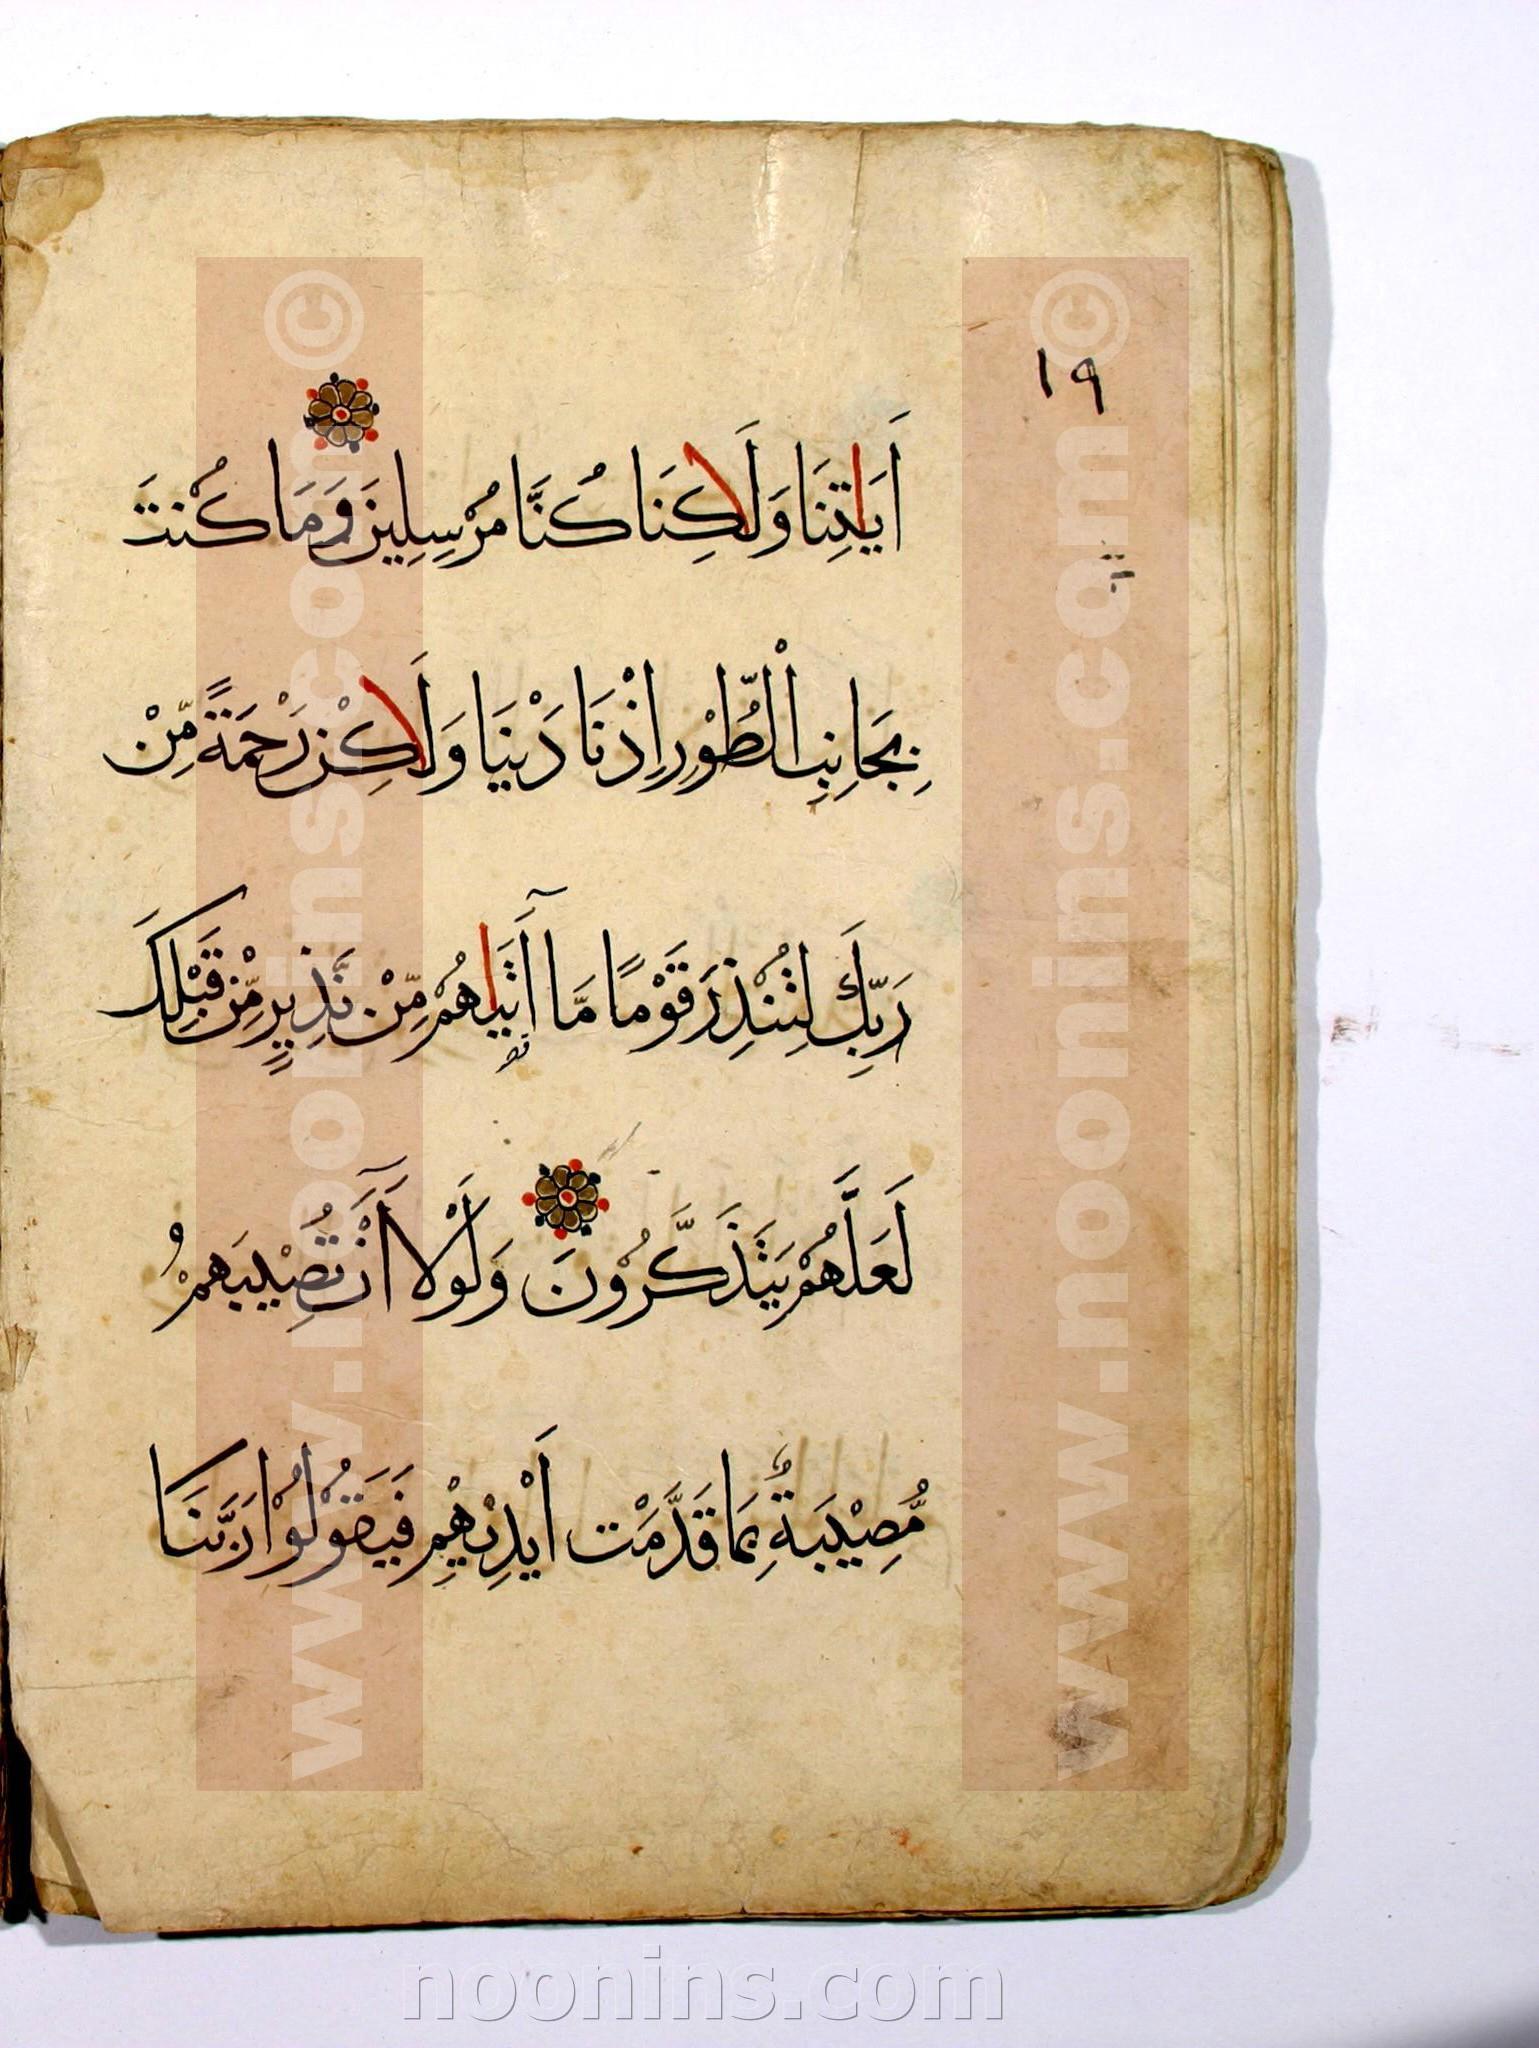 ١٩
اَيَاتِنَا وَلَاكِنَا كُنَّا مُرْسِلِينَ وَمَا كُنتَ
بِجَانِبِ الْطُّوْرِ اِذْنَا دَيْنَا وَلَاكِنْ رَحْمَةً مِّنْ
رَبِّكَ لِتُنْذِرَ قَوْمًا مَّا اَتَيَاهُمْ مِّنْ نَّذِيرٍ مِّنْ قَبْلِكَ
لَعَلَّهُمْ يَتَذَكَّرُونَ وَلَوْلَا اَنْ تُصِيْبَهُمْ
مُّصِيْبَةٌ بِمَا قَدَّمَتْ اَيْدِيْهِمْ فَيَقُوْلُوْا رَبَّنَا
www.noonins.com ©
www.noonins.com ©
noonins.com